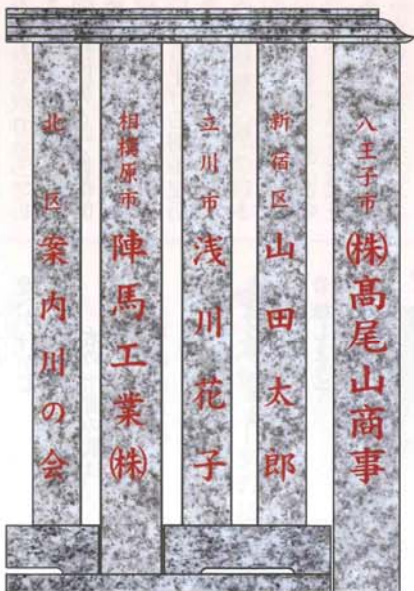 八王子市 ㈱髙尾山商事
新宿区 山田太郎
立川市 浅川花子
相模原市 陣馬工業㈱
北区 案内川の会